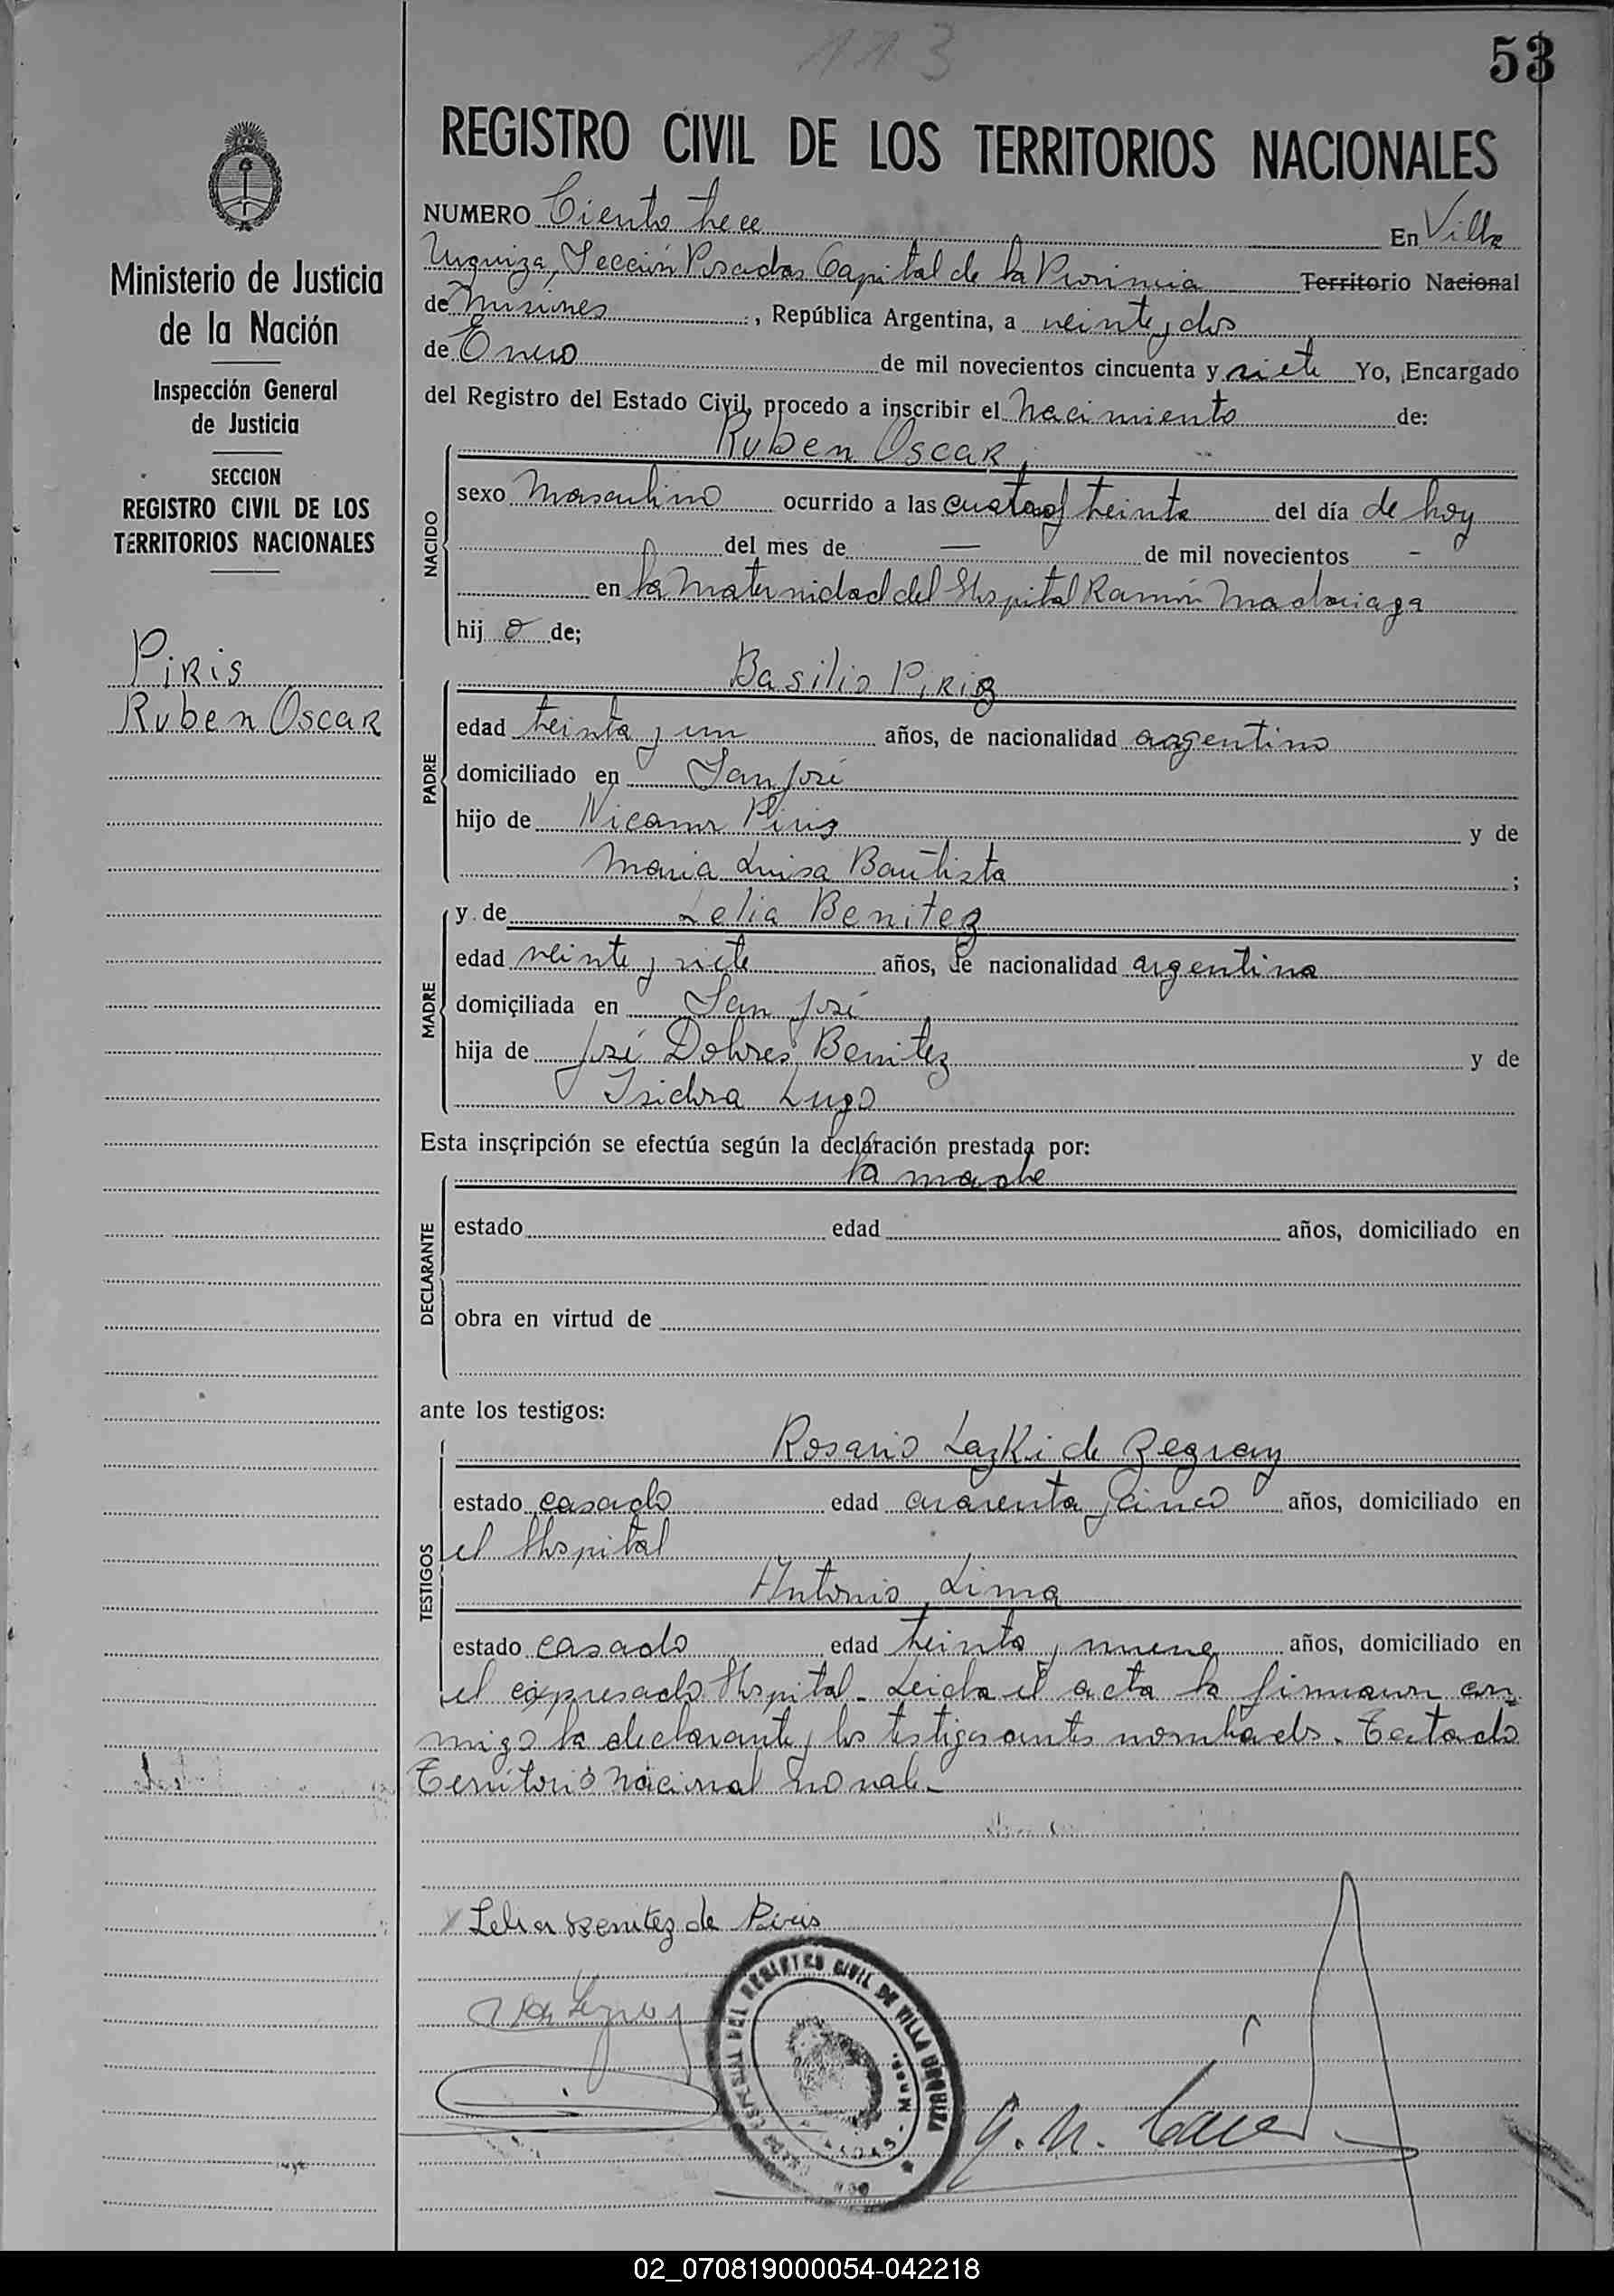 113
53
REGISTRO CIVIL DE LOS TERRITORIOS NACIONALES
Ministerio de Justicia
de la Nación
Inspección General
de Justicia
SECCION
REGISTRO CIVIL DE LOS
TERRITORIOS NACIONALES
Piris
Ruben Oscar
NUMERO Ciento trece En Villa
Urquiza, Sección Posadas Capital de la Provincia Territorio Nacional
de Misiones, República Argentina, a veinte y dos
de Enero de mil novecientos cincuenta y siete Yo, Encargado
del Registro del Estado Civil, procedo a inscribir el nacimiento de:
NACIDO
Ruben Oscar
sexo Masculino ocurrido a las cuatro y treinta del día de hoy
del mes de — de mil novecientos -
en la Maternidad del Hospital Ramón Madariaga
hijo de;
PADRE
Basilio Piriz
edad treinta y un años, de nacionalidad argentino
domiciliado en San José
hijo de Nicanor Piriz y de
Maria Luisa Bautista ;
MADRE
y de Lelia Benitez
edad veinte y siete años, de nacionalidad argentina
domiciliada en San José
hija de José Dolores Benitez y de
Isidra Lugo
Esta inscripción se efectúa según la declaración prestada por:
DECLARANTE
la madre
estado edad años, domiciliado en
obra en virtud de
ante los testigos:
TESTIGOS
Rosario Lazki de
estado casado edad cuarenta y cinco años, domiciliado en
el Hospital
Antonio Lima
estado casado edad treinta y nueve años, domiciliado en
el expresado Hospital - Leida el acta la firmaron con
migo la declarante y los testigos antes nombrados. Testado
Territorio Nacional no vale -
Lelia Benitez de Piris
DEL REGISTRO CIVIL DE VILLA URQUIZA
02_070819000054-042218